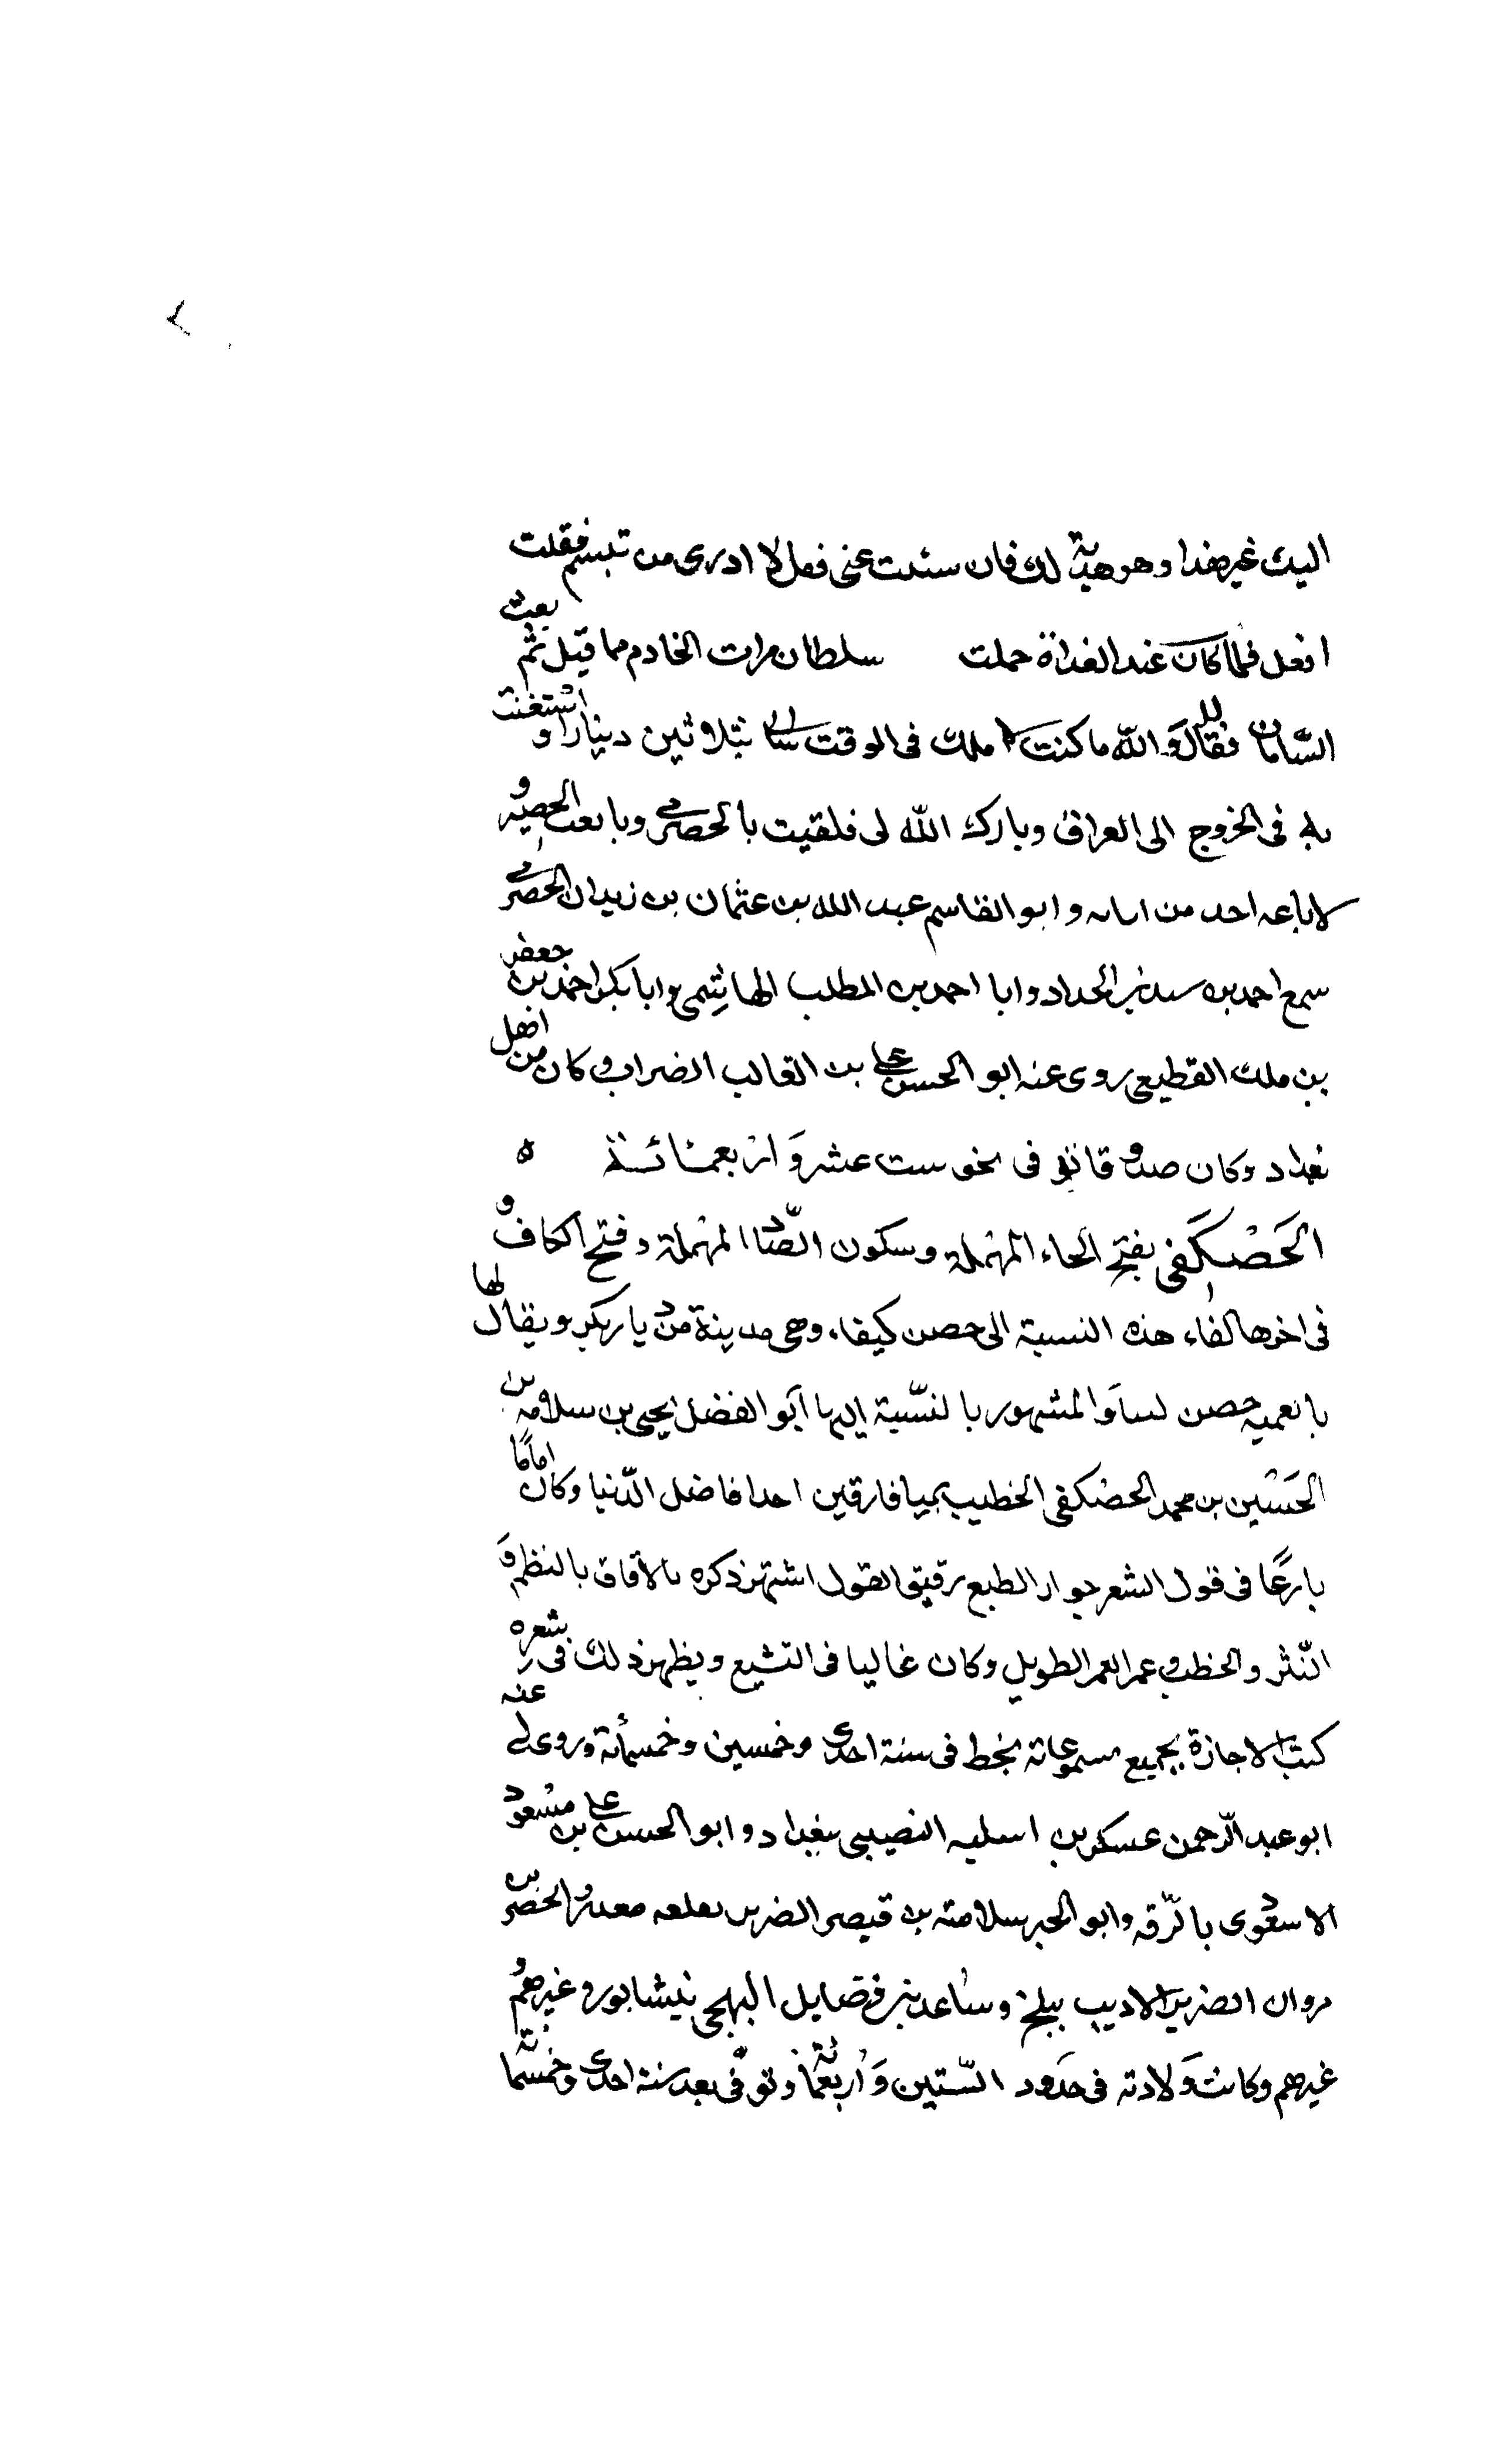 اليك غير هذا وهو هدية لك فان سئلت عنى فعل لا ادرى من تبسم فقلت
افعل فلما كان عند الغداة حملت سلطان مرات الخادم مما قيل ثم بعت
السامان فقال والله ما كنت املك فى الوقت بثلاثين دينارا و استغنت
فى الخروج الى العراق وبارك الله لى فلقيت بالحصرى و
احد من و ابو القاسم عبد الله بن عثمان بن زيدان الحصرى
سمع احمد بن الحداد وابا احمد بن المطلب الهاشمى وابا بكر احمد بن جعفر
بن ملك القطيعى روى عنه ابو الحسن على بن الغالب الضراب و كان من اهل
بغداد وكان صدوقا توفى فى نحو ست عشر وأربعمائة ه
الحَصْكَفى بفتح الحاء المهملة وسكون الصّاد المهملة وفتح الكاف و
فى اخرها الفاء هذه النسبة الى حصن كيفاء وهى مدينة من ديار بكر ويقال لها
حصن والمشهور بالنسبة اليها ابو الفضل يحيى بن سلامة بن
الحسين بن محمد الحصكفى الخطيب بميافارقين احد افاضل الدّنيا وكان اماما
بارعًا فى قول الشعر جواد الطبع رقيق القول اشتهر ذكره بالافاق بالنظم وَ
النّثر والخطب و عمر العمر الطويل وكان غاليا فى التشيع ويظهر ذلك فى شعره
كتب الاجازة بجميع مسموعاته بخط فى سنة احدى وخمسين وخمسمائة وروى لى عنه
ابو عبد الرّحمن عسكر بن النصيبى ببغداد و ابو الحسن على بن مسعود
الاسعردى بالرّقه وابو الخير سلامة بن قيصر الضرير والخضر بن
مروان الضرير الاديب ببلخ وساعد بن فضايل البهجى بنيشابور و غيرهم و
غيرهم وكانت وَلادته فى حدود السّتين وَأربعمائة وتوفّى بعد سنة احدى وخمسمائة